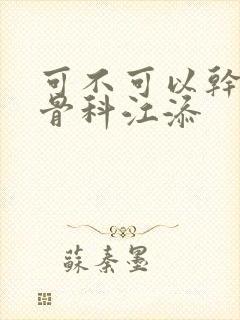 可不可以幹
骨科江添
蘇秦墨